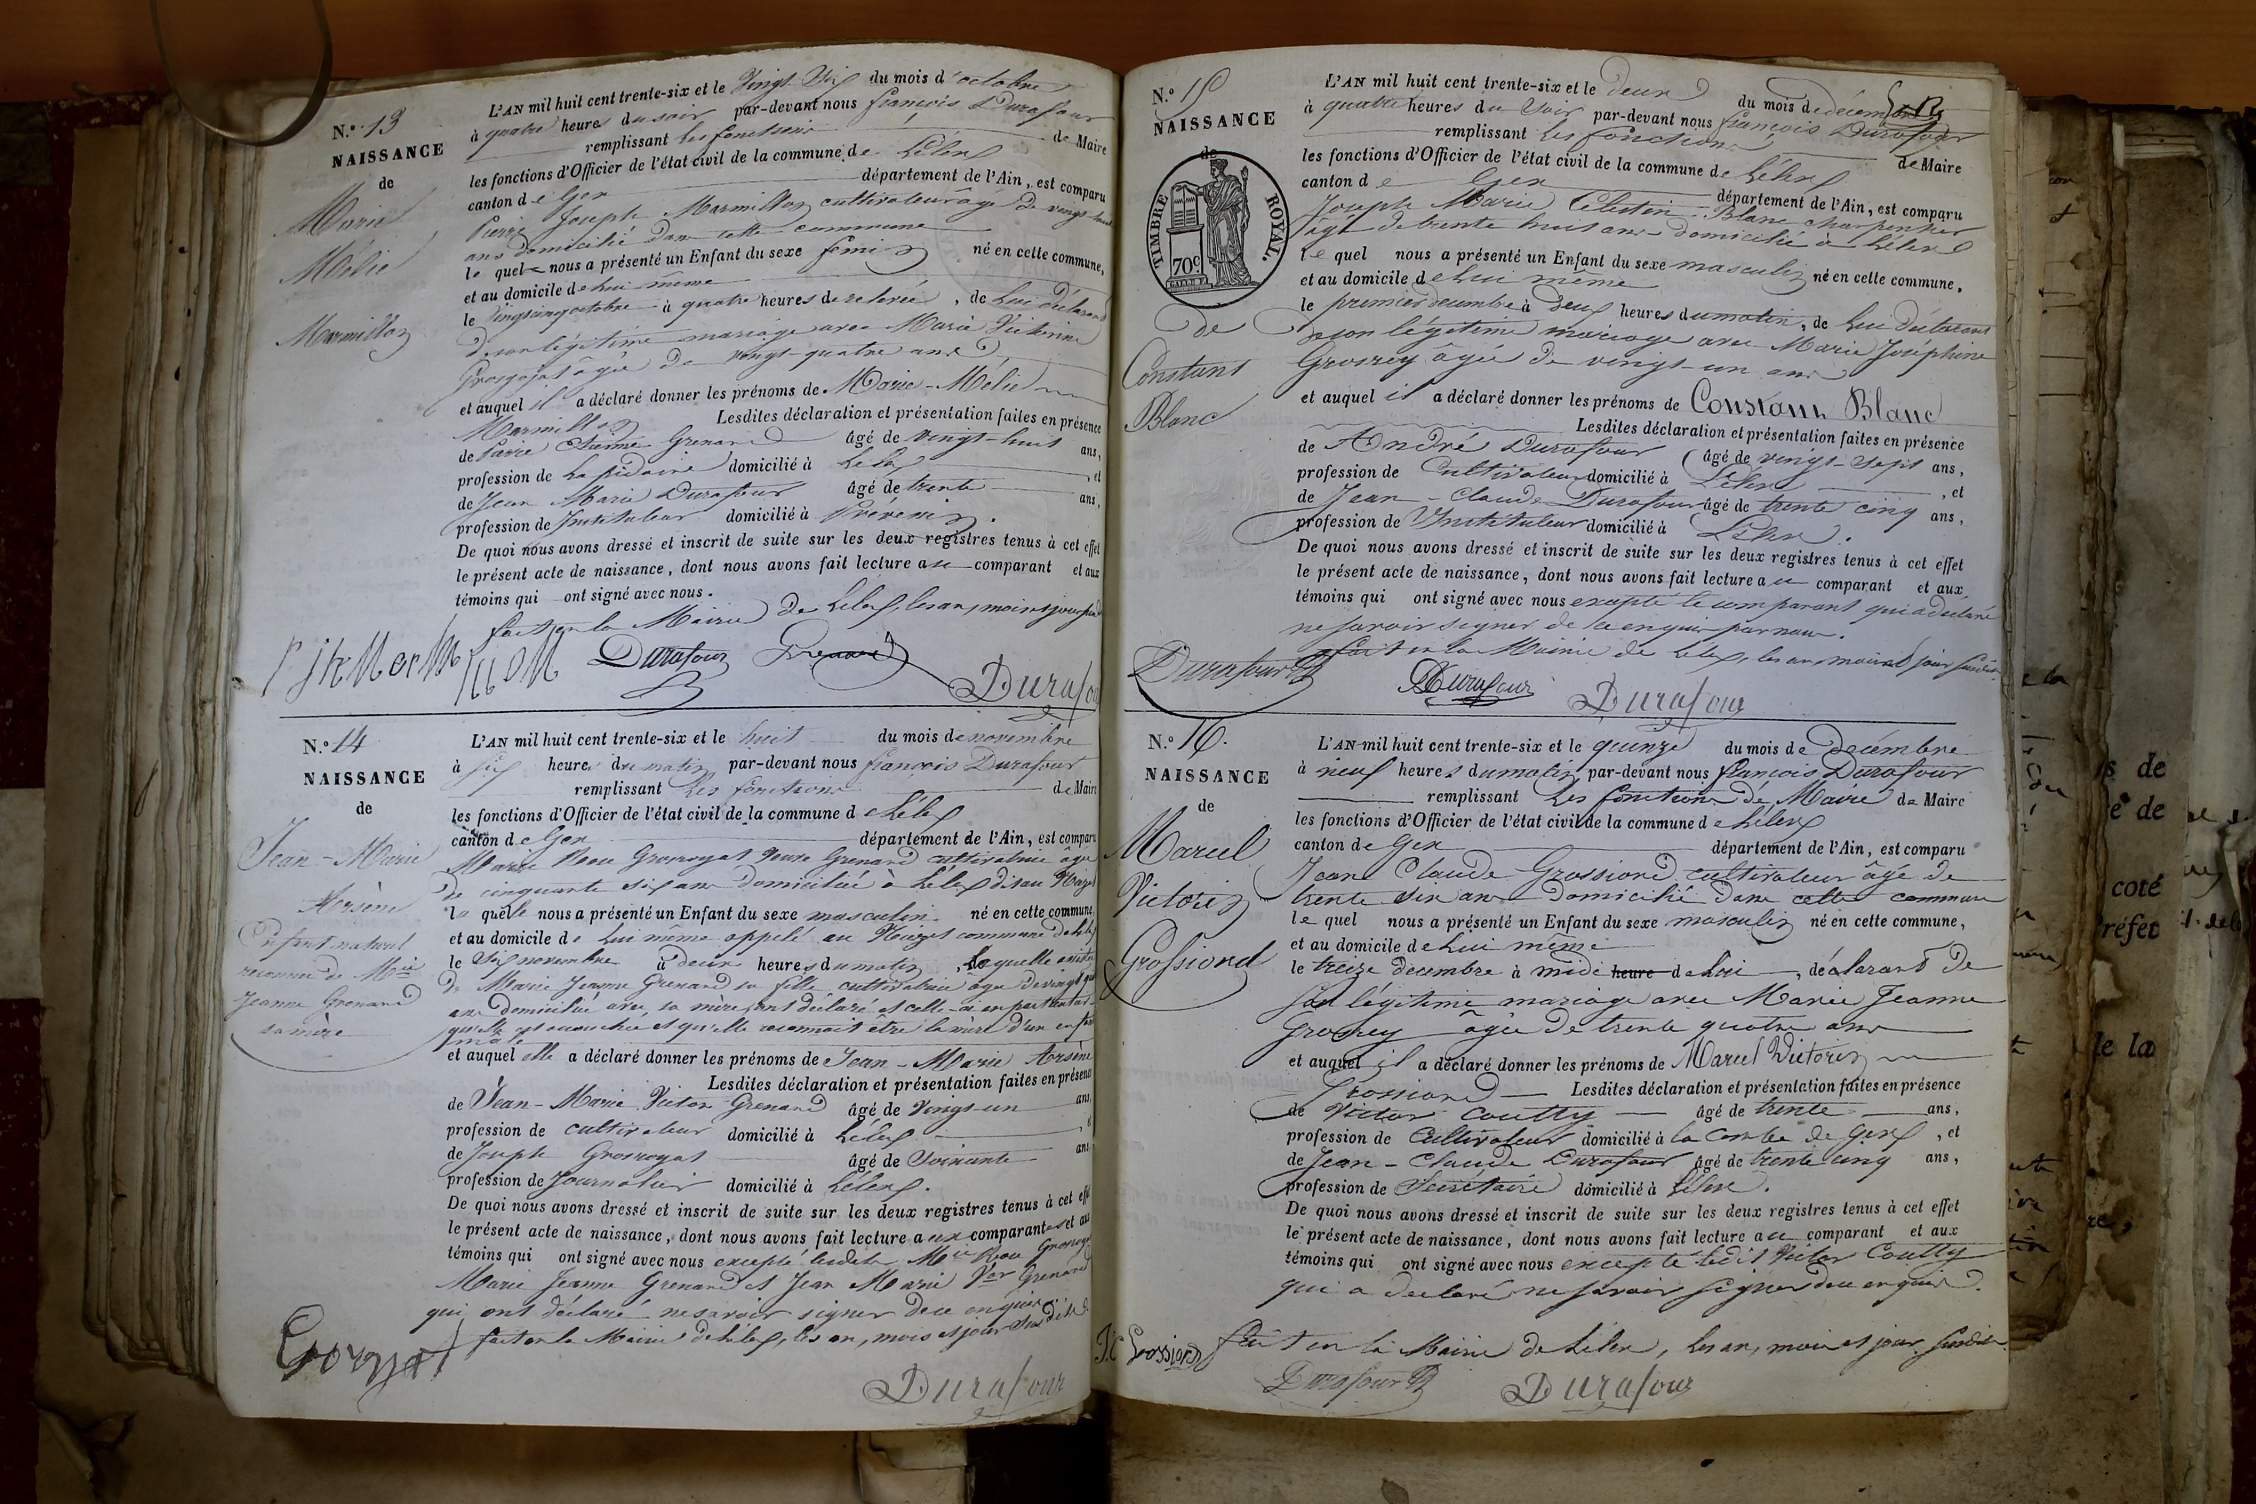 N.º 13
NAISSANCE
de
Marie
Mélie
Marmillon
L'AN mil huit cent trente-six et le Vingt Six du mois d'octobre
à quatre heures du soir par-devant nous françois Durafour
remplissant les fonctions de Maire
les fonctions d'Officier de l'état civil de la commune de Lélex
canton de Gex département de l'Ain, est comparu
Pierre Joseph Marmillon cultivateur âgé de vingt huit
ans domicilié dans cette commune
le quel nous a présenté un Enfant du sexe féminin né en cette commune,
et au domicile de lui même
le vingt cinq octobre à quatre heures de relevée, de lui déclarant
de son légitime mariage avec Marie Victorine
Grosgojat âgée de vingt-quatre ans
et auquel il a déclaré donner les prénoms de Marie-Mélie
Marmillon Lesdites déclaration et présentation faites en présence
de Pierre Grenard âgé de vingt-huit ans,
profession de Lapidaire domicilié à Lélex, et
de Jean Marie Durafour âgé de trente ans,
profession de Instituteur domicilié à
De quoi nous avons dressé et inscrit de suite sur les deux registres tenus à cet effet
le présent acte de naissance, dont nous avons fait lecture au comparant et aux
témoins qui ont signé avec nous.
fait en la Mairie de Lélex, les an, mois et jour susdits
Durafour Grenard
Durafour
N.º 14
NAISSANCE
de
Jean-Marie
Arsène
Enfant naturel
reconnu de Mie
Jeanne Grenard
sa mère
L'AN mil huit cent trente-six et le huit du mois de novembre
à six heures du matin par-devant nous françois Durafour
remplissant les fonctions de Maire
les fonctions d'Officier de l'état civil de la commune de Lélex
canton de Gex département de l'Ain, est comparu
Marie Rose Grosroyat Veuve Grenard cultivatrice âgée
de cinquante six ans domiciliée à Lélex dit au
la quelle nous a présenté un Enfant du sexe masculin né en cette commune,
et au domicile de lui même appelé au commune de Lélex
le Six novembre à deux heures du matin, laquelle assistée
de Marie Jeanne Grenard sa fille cultivatrice âgée de vingt
ans domicilié avec sa mère, ont déclaré et celle-ci en particulier
qu'elle est accouchée et qu'elle reconnait être la mère d'un enfant
male
et auquel elle a déclaré donner les prénoms de Jean-Marie Arsène
Lesdites déclaration et présentation faites en présence
de Jean-Marie Victor Grenard âgé de vingt-un ans,
profession de cultivateur domicilié à Lélex, et
de Joseph Grosroyat âgé de Soixante ans
profession de Journalier domicilié à Lélex.
De quoi nous avons dressé et inscrit de suite sur les deux registres tenus à cet effet
le présent acte de naissance, dont nous avons fait lecture aux comparantes et aux
témoins qui ont signé avec nous excepté lesdites Mie Rose Grosroyat
Marie Jeanne Grenard et Jean Marie Vor Grenard
qui ont déclaré ne savoir signer de ce enquis.
fait en la Mairie de Lélex, les an, mois et jour susdits
Durafour
N.º 15
NAISSANCE
de
TIMBRE ROYAL.
70c
de
Constant
Blanc
L'AN mil huit cent trente-six et le deux du mois de décembre
à quatre heures du soir par-devant nous françois Durafour
remplissant les fonctions de Maire
les fonctions d'Officier de l'état civil de la commune de Lélex
canton de Gex département de l'Ain, est comparu
Joseph Marie Célestin Blanc charpentier
âgé de trente huit ans domicilié à Lélex
le quel nous a présenté un Enfant du sexe masculin né en cette commune,
et au domicile de lui même
le premier decembre à deux heures du matin, de lui déclarant
de son légitime mariage avec Marie Joséphine
Grosrey âgée de vingt-un ans
et auquel il a déclaré donner les prénoms de Constant Blanc
Lesdites déclaration et présentation faites en présence
de André Durafour âgé de vingt-sept ans,
profession de Cultivateur domicilié à Lélex, et
de Jean-Claude Durafour âgé de trente cinq ans,
profession de Instituteur domicilié à Lélex.
De quoi nous avons dressé et inscrit de suite sur les deux registres tenus à cet effet
le présent acte de naissance, dont nous avons fait lecture au comparant et aux
témoins qui ont signé avec nous excepté le comparant qui a déclaré
ne savoir signer de ce enquis par nous.
fait en la Mairie de Lélex, les an, mois et jour susdits
Durafour
Durafour
Durafour
N.º 16.
NAISSANCE
de
Marcel
Victorin
Grossiord
L'AN mil huit cent trente-six et le quinze du mois de Décembre
à neuf heures du matin par-devant nous françois Durafour
remplissant les fonctions de Maire de Maire
les fonctions d'Officier de l'état civil de la commune de Lélex
canton de Gex département de l'Ain, est comparu
Jean Claude Grossiord cultivateur âgé de
trente six ans domicilié dans cette commune
le quel nous a présenté un Enfant du sexe masculin né en cette commune,
et au domicile de lui même
le treize decembre à midi heure de lui, déclarant de
son légitime mariage avec Marie Jeanne
Grosrey âgée de trente quatre ans
et auquel il a déclaré donner les prénoms de Marcel Victorin
Grossiord Lesdites déclaration et présentation faites en présence
de Victor Coutty âgé de trente ans,
profession de Cultivateur domicilié à la Combe de Gex, et
de Jean-Claude Durafour âgé de trente cinq ans,
profession de Secrétaire domicilié à Lélex.
De quoi nous avons dressé et inscrit de suite sur les deux registres tenus à cet effet
le présent acte de naissance, dont nous avons fait lecture au comparant et aux
témoins qui ont signé avec nous excepté ledit Victor Coutty
qui a declaré ne savoir signer de ce enquis.
fait en la Mairie de Lélex, les an, mois et jour susdits
J.C Grossiord
Durafour
Durafour